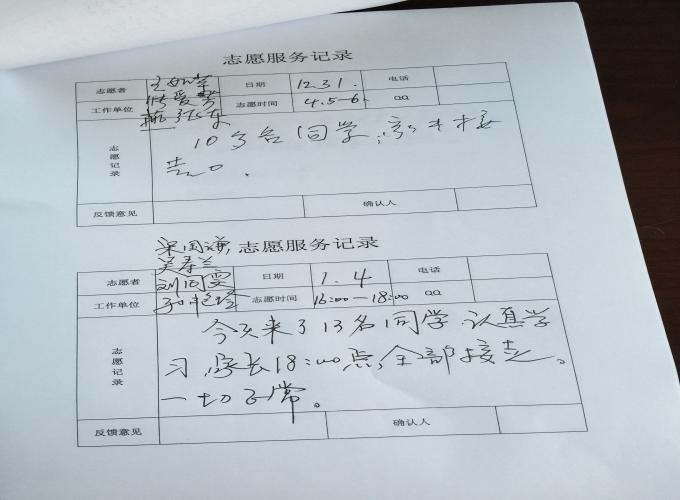 志愿服务记录
志愿者 日期 12.31. 电话
工作单位 志愿时间 4.5-6. QQ
志愿记录
10多名同学,家长接
走口.
反馈意见 确认人
梁国谦, 志愿服务记录
吴春兰
志愿者 刘同雯 日期 1.4 电话
工作单位 志愿时间 16:00-18:00 QQ
志愿记录
今天来了13名同学.认真学
习,家长18:00点,全部接走。
一切正常。
反馈意见 确认人